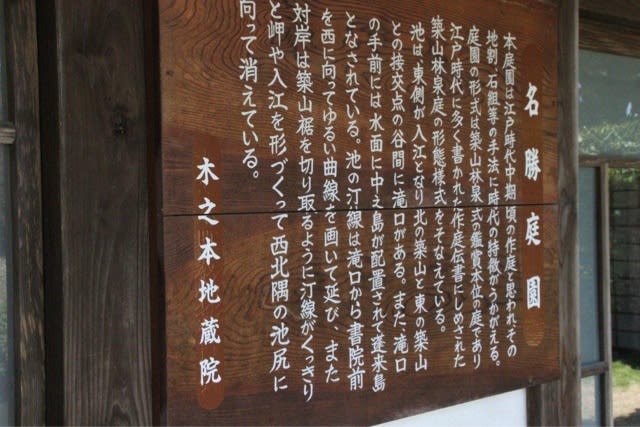 名勝庭園
本庭園は江戸時代中期頃の作庭と思われ、その
地割、石組等の手法に時代の特徴がうかがえる。
庭園の形式は築山林泉式の鑑賞本位の庭であり
江戸時代に多く書かれた作庭伝書にしめされた
築山林泉庭への形態様式をそなえている。
池は、東側が入江となり北の築山と東の築山
との接交点の谷間に滝口がある。また、滝口
の手前には水面に中之島が配置されて蓬来島
となされている。池の汀線は滝口から書院前
を西に向ってゆるい曲線を画いて延び、また
対岸は築山裾を切り取るように汀線がくっきり
と岬や入江を形づくって西北隅の池尻に
向って消えている。
木之本地蔵院